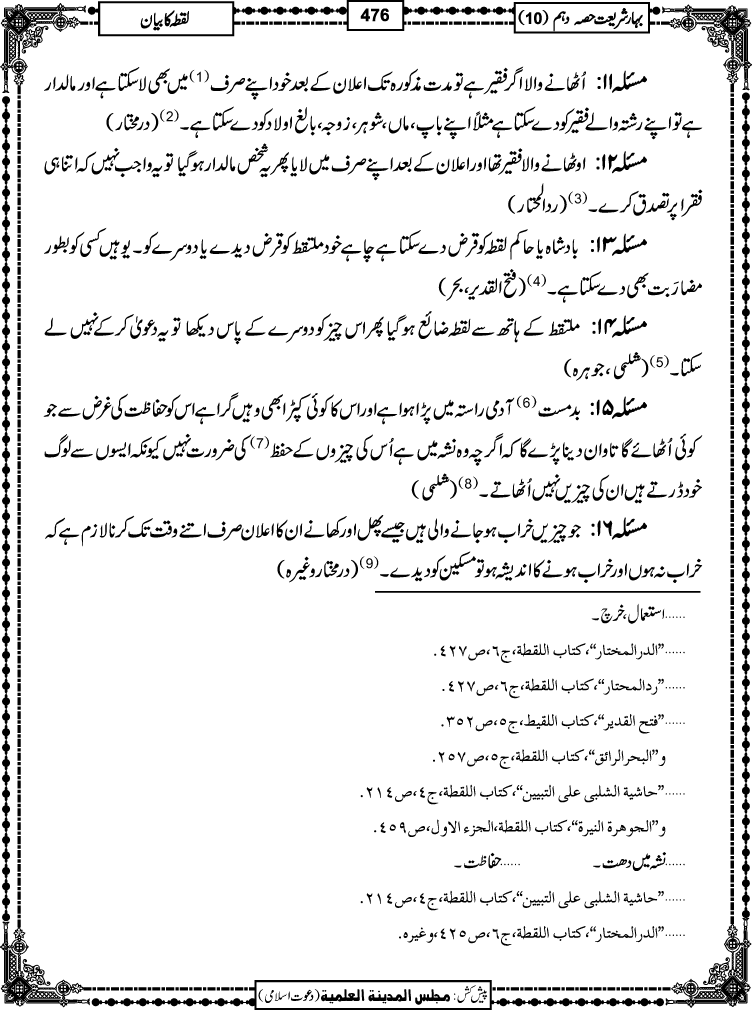 بہارِ شریعت حصہ دہم (10)
476
لقطہ کا بیان
مسئلہ ۱۱: اُٹھانے والا اگر فقیر ہے تو مدت مذکورہ تک اعلان کے بعد خود اپنے صرف (1) میں بھی لا سکتا ہے اور مالدار
ہے تو اپنے رشتہ والے فقیر کو دے سکتا ہے مثلاً اپنے باپ، ماں، شوہر، زوجہ، بالغ اولاد کو دے سکتا ہے۔ (2) (درمختار)
مسئلہ ۱۲: اوٹھانے والا فقیر تھا اور اعلان کے بعد اپنے صرف میں لایا پھر یہ شخص مالدار ہوگیا تو یہ واجب نہیں کہ اتنا ہی
فقرا پر تصدق کرے۔ (3) (ردالمحتار)
مسئلہ ۱۳: بادشاہ یا حاکم لقطہ کو قرض دے سکتا ہے چاہے خود ملتقط کو قرض دیدے یا دوسرے کو۔ یوہیں کسی کو بطور
مضارَبت بھی دے سکتا ہے۔ (4) (فتح القدیر، بحر)
مسئلہ ۱۴: ملتقط کے ہاتھ سے لقطہ ضائع ہوگیا پھر اس چیز کو دوسرے کے پاس دیکھا تو یہ دعویٰ کرکے نہیں لے
سکتا۔ (5) (شلبی، جوہرہ)
مسئلہ ۱۵: بدمست (6) آدمی راستہ میں پڑا ہوا ہے اور اس کا کوئی کپڑا بھی وہیں گرا ہے اس کو حفاظت کی غرض سے جو
کوئی اُٹھائے گا تاوان دینا پڑے گا کہ اگرچہ وہ نشہ میں ہے اُس کی چیزوں کے حفظ (7) کی ضرورت نہیں کیونکہ ایسوں سے لوگ
خود ڈرتے ہیں ان کی چیزیں نہیں اُٹھاتے۔ (8) (شلبی)
مسئلہ ۱۶: جو چیزیں خراب ہو جانے والی ہیں جیسے پھل اور کھانے ان کا اعلان صرف اتنے وقت تک کرنا لازم ہے کہ
خراب نہ ہوں اور خراب ہونے کا اندیشہ ہو تو مسکین کو دیدے۔ (9) (درمختار وغیرہ)
......استعمال، خرچ۔
......”الدرالمختار“، کتاب اللقطة، ج٦، ص٤٢٧.
......”ردالمحتار“، کتاب اللقطة، ج٦، ص٤٢٧.
......”فتح القدير“، کتاب اللقيط، ج٥، ص٣٥٢.
و ”البحرالرائق“، کتاب اللقطة، ج٥، ص٢٥٧.
......”حاشية الشلبی علی التبيين“، کتاب اللقطة، ج٤، ص٢١٤.
و ”الجوهرة النيرة“، کتاب اللقطة، الجزء الاول، ص٤٥٩.
......نشہ میں دھت۔ ......حفاظت۔
......”حاشية الشلبی علی التبيين“، کتاب اللقطة، ج٤، ص٢١٤.
......”الدرالمختار“، کتاب اللقطة، ج٦، ص٤٢٥، وغيره.
پیش کش: مجلس المدينة العلمية (دعوت اسلامی)